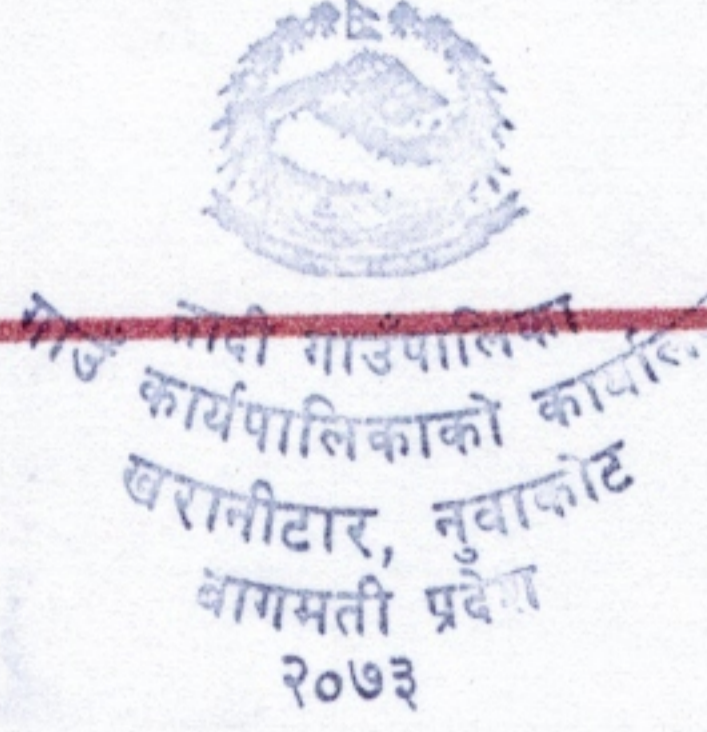 तादी गाउँपालिका
गाउँ कार्यपालिकाको कार्यालय
खरानीटार, नुवाकोट
बागमती प्रदेश
२०७३